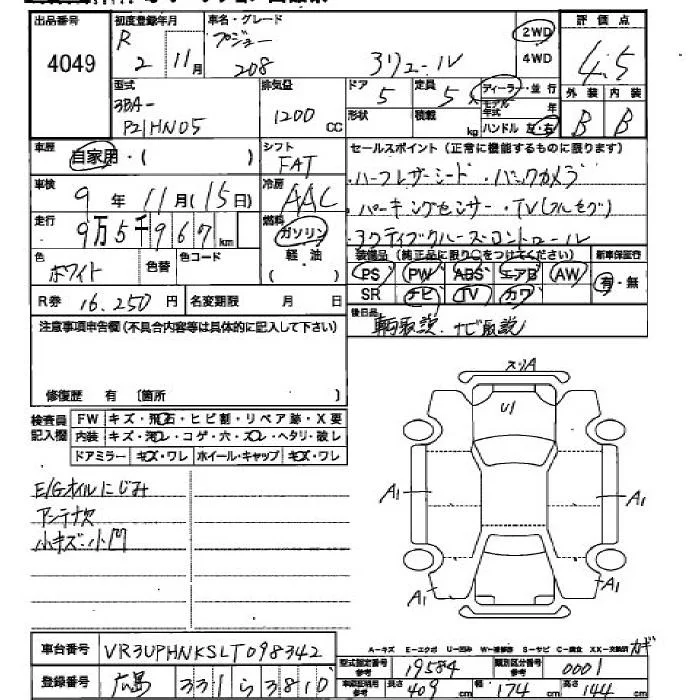 出品番号 初度登録年月 車名・グレード 評価点
4049 R 2 11月 プジョー 208 アリュール 2WD 4WD 4.5
型式 排気量 ドア 定員 ディーラー・並行 外装 内装
3BA- P21HN05 1200 cc 5 5人 モデル年式 年 B B
形状 積載 kg ハンドル 左・右
車歴 自家用・( ) シフト FAT セールスポイント (正常に機能するものに限ります)
車検 9年 11月(15日) 冷房 AAC ・ハーフレザーシート・バックカメラ
走行 9万5千967km 燃料 ガソリン 軽・油 ( ) ・パーキングセンサー・TV(フルセグ)
・アクティブクルーズコントロール
色 ホワイト 色替 色コード 装備品 (純正品に限り○をつけてください) 新車保証書
PS PW ABS エアB AW 有・無
R券 16,250円 名変期限 月 日 SR ナビ TV カワ
注意事項申告欄 (不具合内容等は具体的に記入して下さい) 後日品 車輌取説・ナビ取説
修復歴 有 〔箇所 〕
検査員記入欄 FW キズ・飛石・ヒビ割・リペア跡・X要
内装 キズ・汚レ・コゲ・穴・スレ・ヘタリ・破レ
ドアミラー キズ・ワレ ホイール・キャップ キズ・ワレ
スリA
U1
E/Gオイルにじみ
A1 A1
アンテナ欠
小キズ・小凹
A1 A1
A-キズ E-エクボ U-凹み W-補修跡 S-サビ C-腐食 XX-交換済
車台番号 VR3UPHNKSLT098342 型式指定番号 参考 19584 類別区分番号 参考 0001
登録番号 広島 331 ら 3810 車両証明書 参考 長さ 409 cm 幅 174 cm 高さ 144 cm